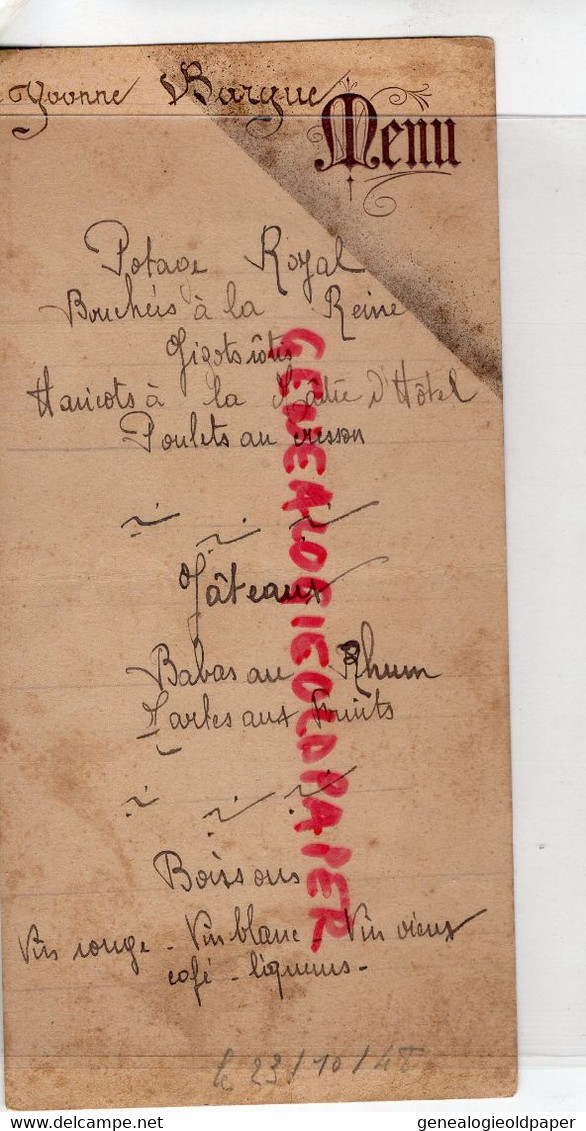 Yvonne Bargue
Menu
Potage Royal
Bouchées à la Reine
Gigots rôtis
Haricots à la Maître d'Hôtel
Poulets au cresson
Gâteaux
Babas au Rhum
Tartes aux Fruits
Boissons
Vin rouge - Vin blanc / Vin vieux
café - liqueurs -
le 23/10/48
GENEALOGIEOLDPAPER
delcampe.net
genealogieoldpaper